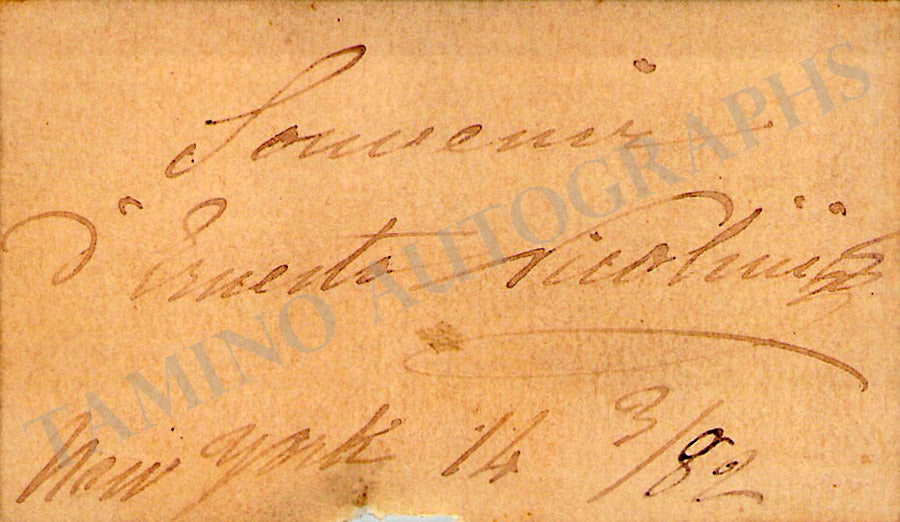 Souvenir
d'Ernesto Nicolini
New York 14 3/82
TAMINO AUTOGRAPHS